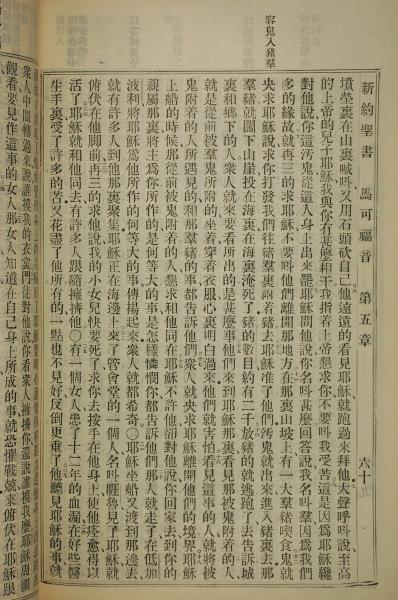 新約聖書 馬可福音 第五章
容鬼入豬羣
墳塋裏在山裏喊叫又用石頭砍自己他遠遠的看見耶穌就跑過來拜他大聲呼叫說至高
的上帝的兒子耶穌我與你有甚麼相干我指着上帝懇求你不要叫我受苦這是因爲耶穌纔
對他說你這汚鬼從這人身上出來罷耶穌問他說你名叫甚麼回答說我名叫羣因爲我們
多的緣故就再三的求耶穌不要叫他們離開那地方在那裏山坡上有一大羣豬喫食鬼就
央求耶穌說求你打發我們往豬羣裏附着豬去耶穌准了他們汚鬼就出來進入豬裏去那
羣豬就闖下山崖投在海裏在海裏淹死了豬的數目約有二千放豬的就逃跑了去告訴城
裏和鄉下的人衆人就來要看所出的是甚麼事他們來到耶穌那裏看見那被鬼附着的人
就是從前被羣鬼所附的坐着穿着衣服心裏明白過來他們就害怕看見這事的人就將被
鬼附着的人所遇見的和那羣豬的事都告訴他們衆人就央求耶穌離開他們的境界耶穌
上船的時候那從前被鬼附着的人懇求和他同在耶穌不許他卻對他說你回家去到你的
親屬那裏將主爲你所作的是何等大的事是怎樣憐憫你都告訴他們那人就走了在低加
波利將耶穌爲他所作的何等大的事傳揚起來衆人就都希奇○耶穌坐船又渡到那邊去
就有許多人到他那裏聚集耶穌正在海邊上來了管會堂的一個人名叫睚魯見了耶穌就
俯伏在他脚前再三的求他說我的小女兒快要死了求你去按手在他身上使他痊愈得以
活了耶穌就和他同去有許多人跟隨擁擠他○有一個女人患了十二年的血漏在好些醫
生手裏受了許多的苦又花盡了他所有的一點也不見好反倒更重了他聽見耶穌的事就
衆人中間轉過來說誰摸我的衣裳門徒對他說你看衆人擁擠你還說誰摸我麼耶穌周圍
觀看要見作這事的女人那女人知道在自己身上所成的事就恐懼戰兢來俯伏在耶穌跟